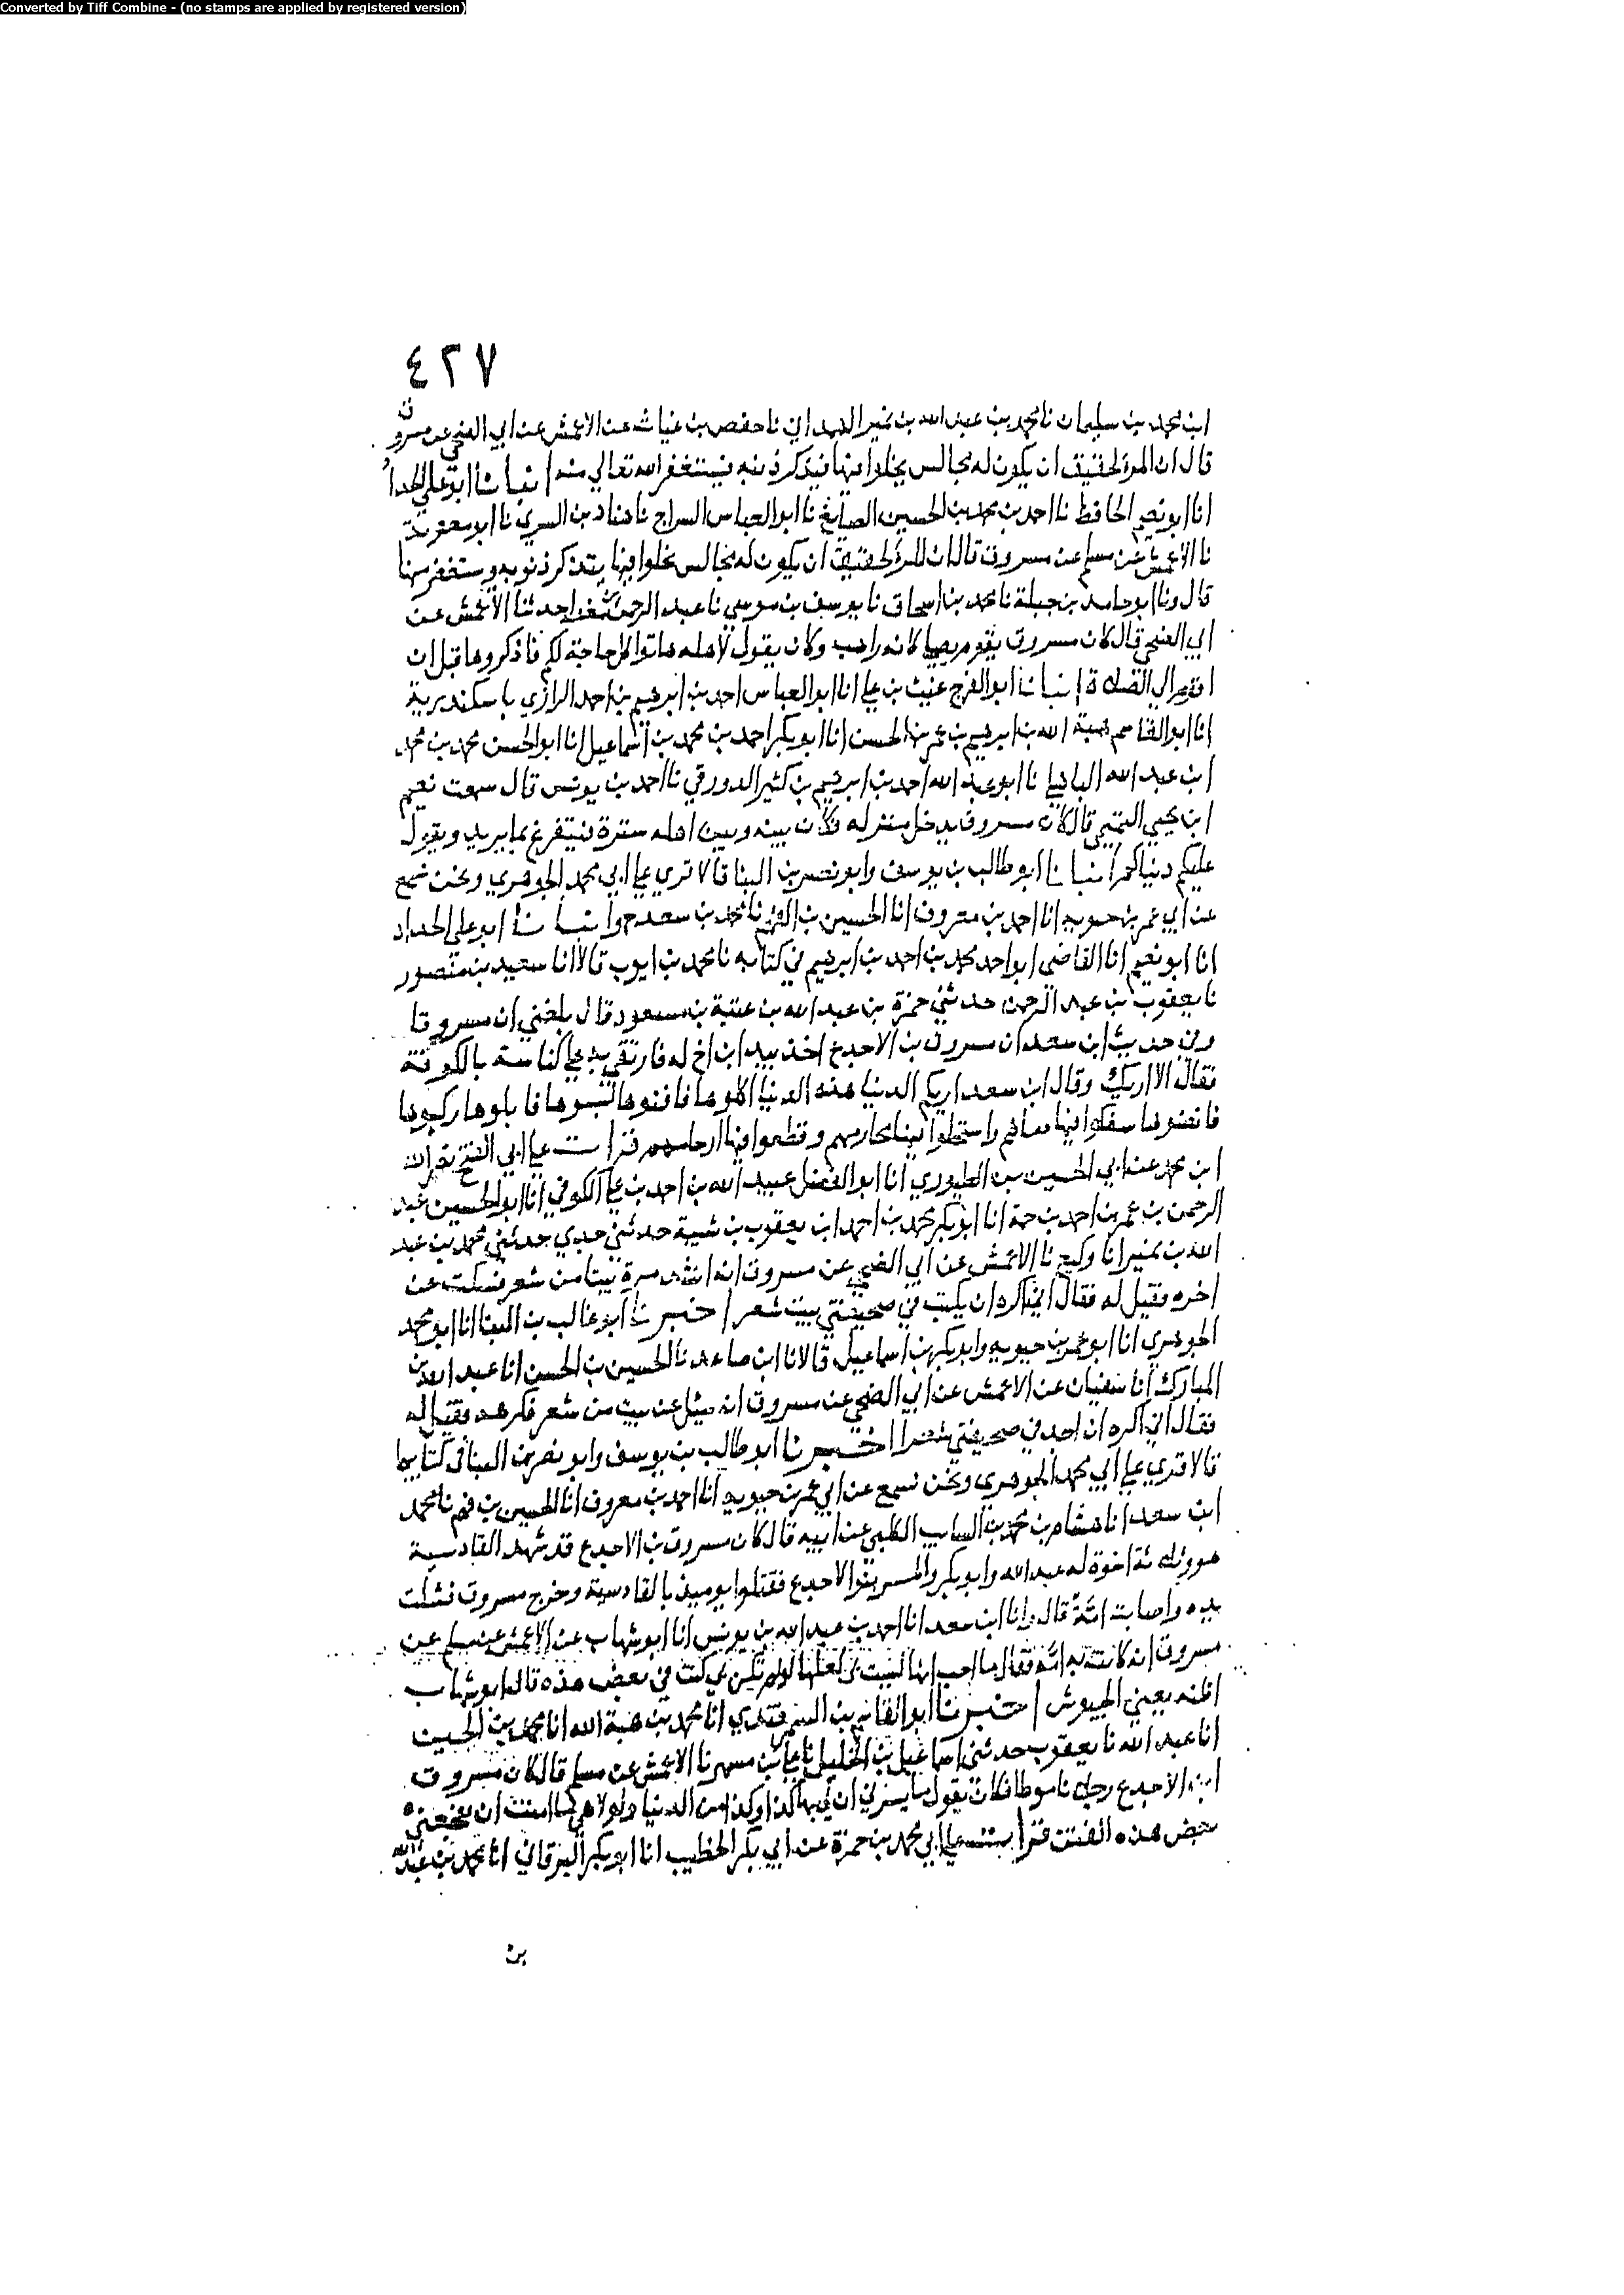 Converted by Tiff Combine - (no stamps are applied by registered version)
٤٢٧
ابن محمد بن سليمان نا محمد بن عبد الله بن نمير الهمداني نا حفص بن غياث عن الاعمش عن ابي الضحى عن مسروق
قال ان المرء لحقيق ان يكون له مجالس يخلوا فيها فيذكر ذنبه فيستغفر الله تعالي منه انبانا ابو علي الحداد
انا ابو نعيم الحافظ نا احمد بن محمد بن الحسين الصايغ نا ابو العباس السراج نا هناد بن السري نا ابو معوية
نا الاعمش عن مسلم عن مسروق قال ان المرء لحقيق ان يكون له مجالس يخلوا فيها يتذكر ذنوبه ويستغفر منها
قال ونا ابو حامد بن جبلة نا محمد بن اسحاق نا يوسف بن موسي نا عبد الرحمن حدثنا الاعمش عن
ابي الضحى قال كان مسروق يقوم يصلي كانه راهب وكان يقول لاهله هاتوا كل حاجة لكم فاذكروها قبل ان
اقوم الي الصلاة انبانا ابو الفرج غيث بن علي انا ابو العباس احمد بن ابرهيم بن احمد الرازي باسكندرية
انا ابو القاسم هبة الله بن ابرهيم بن عمر بن الحسن انا ابو بكر احمد بن محمد بن اسماعيل انا ابو الحسن محمد بن محمد
ابن عبد الله الباهلي نا ابو عبد الله احمد بن ابرهيم بن كثير الدورقي نا احمد بن يونس قال سمعت نعيم
ابن يحيي التميمي قال كان مسروق يدخل منزله فكان بينه وبين اهله سترة فيتفرغ لما يريد ويقول
عليكم دنياكم انبانا ابو طالب بن يوسف وابو نصر بن البنا قالا قري علي ابي محمد الجوهري ونحن نسمع
عن ابي عمر بن حيويه انا احمد بن معروف انا الحسين بن الفهم نا محمد بن سعد ح وانبانا ابو علي الحداد
انا ابو نعيم انا القاضي ابو احمد محمد بن احمد بن ابرهيم في كتابه نا محمد بن ايوب قالا انا سعيد بن منصور
نا يعقوب بن عبد الرحمن حدثني حمزة بن عبد الله بن عتبة بن مسعود قال بلغني ان مسروقا
وفي حديث ابن سعد ان مسروق بن الاجدع اخذ بيد ابن اخ له فارتقي به علي كناسة بالكوفة
فقال الا اريك وقال ابن سعد اريكم الدنيا هذه الدنيا اكلوها فافنوها لبسوها فابلوها ركبوها
فانضوها سفكوا فيها دماهم واستحلوا فيها محارمهم وقطعوا فيها ارحامهم قرات علي ابي الفتح نصر الله
ابن محمد عن ابي الحسين بن الطيوري انا ابو الفضل عبيد الله بن احمد بن علي الكوفي انا ابو الحسين عبد
الرحمن بن عمر بن احمد بن حمة انا ابو بكر محمد بن احمد ابن يعقوب بن شيبة حدثني جدي حدثني محمد بن عبد
الله بن نمير انا وكيع نا الاعمش عن ابي الضحى عن مسروق انه انشد مرة بيتا من شعر فسكت عن
اخره فقيل له فقال اني اكره ان يكتب في صحيفتي بيت شعر اخبرنا ابو غالب بن البنا انا ابو محمد
الجوهري انا ابو عمر بن حيويه وابو بكر بن اسماعيل قالا نا ابن صاعد نا الحسين بن الحسن انا عبد الله بن
المبارك انا سفيان عن الاعمش عن ابي الضحى عن مسروق انه سئل عن بيت من شعر فكرهه فقيل له
فقال اني اكره ان اجد في صحيفتي شعرا اخبرنا ابو طالب بن يوسف وابو نصر بن البنا في كتابيهما
قالا قري علي ابي محمد الجوهري ونحن نسمع عن ابي عمر بن حيويه انا احمد بن معروف انا الحسين بن فهم نا محمد
ابن سعد انا هشام بن محمد بن السايب الكلبي عن ابيه قال كان مسروق بن الاجدع قد شهد القادسية
هو وثلثة اخوة له عبد الله وابو بكر والمنتشر بنوا الاجدع فقتلوا يوميذ بالقادسية وخرج مسروق فشلت
يده واصابته امة قال وانا ابن سعد انا احمد بن عبد الله بن يونس انا ابو شهاب عن الاعمش عن مسلم عن
مسروق انه كانت به امة فقال ما احب انها ليست بي لعلها لو لم تكن بي كنت في بعض هذه قال ابو شهاب
اظنه يعني الجيوش اخبرنا ابو القاسم بن السمرقندي انا محمد بن هبة الله انا محمد بن الحسين
انا عبد الله نا يعقوب حدثني اسماعيل بن الخليل نا علي بن مسهر نا الاعمش عن مسلم قال كان مسروق
ابن الاجدع رجلا ماموما فكان يقول ما يسرني ان لي بها كذا وكذا من الدنيا ولولا هي ما امنت ان
بعض هذه الفتن قرات علي ابي محمد بن حمزة عن ابي بكر الخطيب انا ابو بكر البرقاني انا محمد بن عبد الله
بن